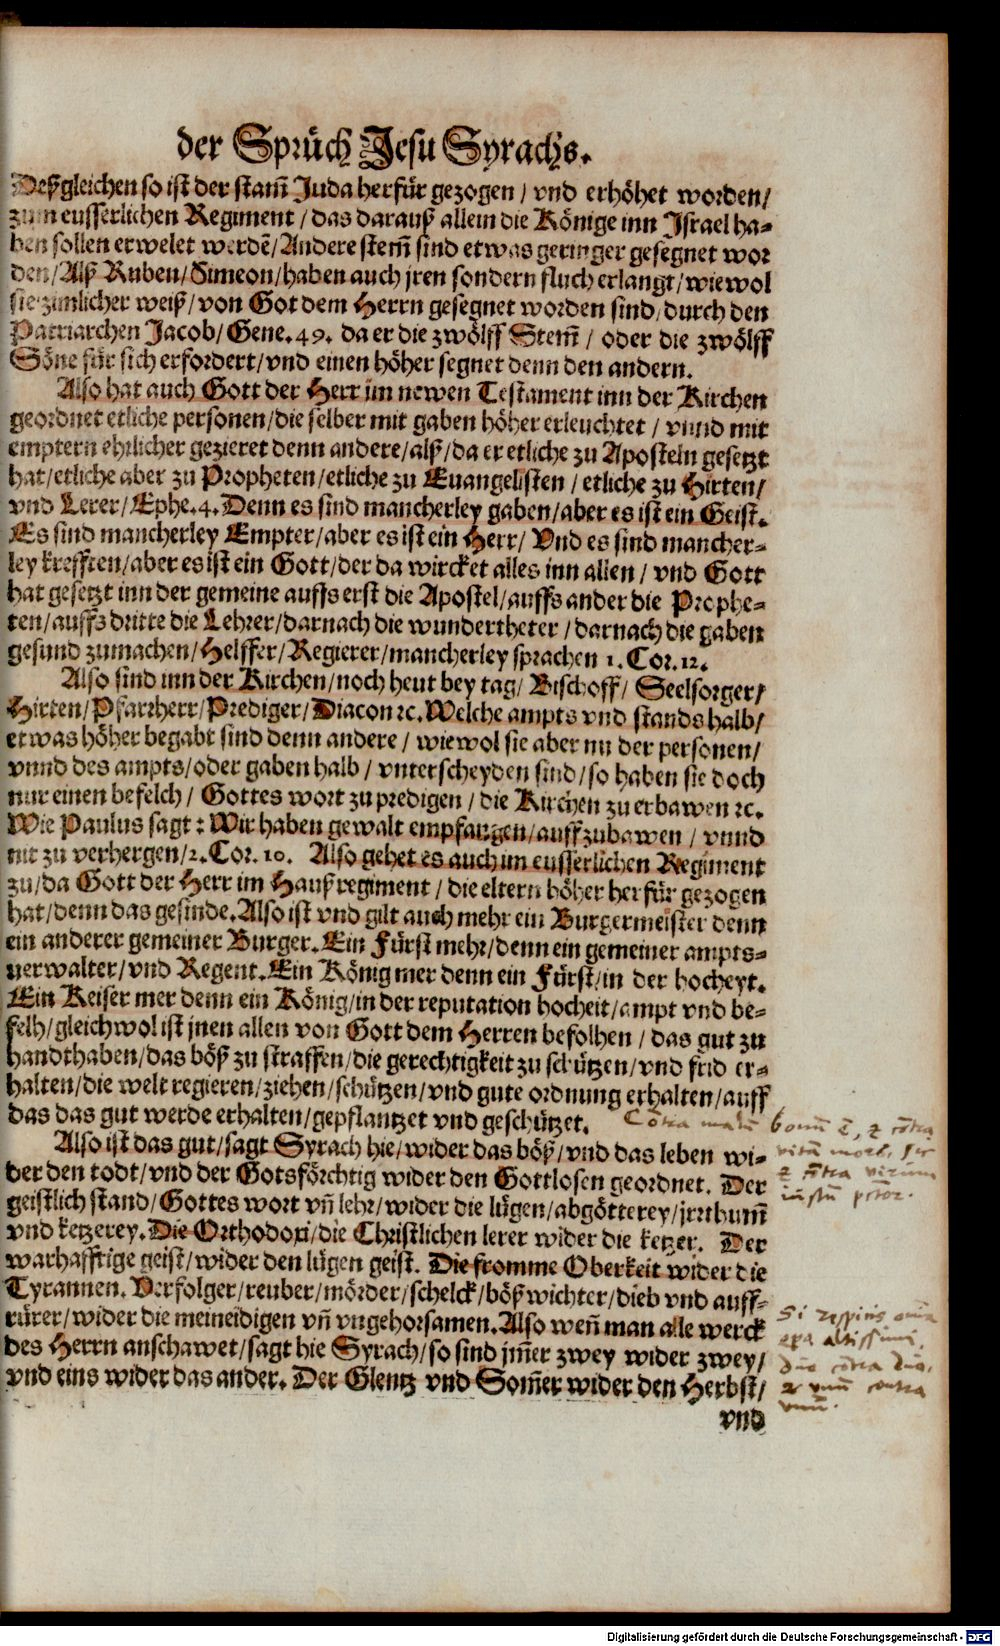 der Sprüch Jesu Syrachs.
Deßgleichen so ist der stam̃ Juda herfür gezogen / vnd erhöhet worden /
zum eusserlichen Regiment / das darauß allein die Könige inn Israel ha-
ben sollen erwelet werdẽ / Andere stem̃ sind etwas geringer gesegnet wor
den / Alß Ruben / Simeon / haben auch jren sondern fluch erlangt / wiewol
sie zimlicher weiß / von Got dem Herrn gesegnet worden sind / durch den
Patriarchen Jacob / Gene. 49. da er die zwölff Stem̃ / oder die zwölff
Söne für sich erfordert / vnd einen höher segnet denn den andern.
Also hat auch Gott der Herr im newen Testament inn der Kirchen
geordnet etliche personen / die selber mit gaben höher erleuchtet / vnnd mit
emptern ehrlicher gezieret denn andere / alß / da er etliche zu Aposteln gesetzt
hat / etliche aber zu Propheten / etliche zu Euangelisten / etliche zu Hirten /
vnd Lerer / Ephe. 4. Denn es sind mancherley gaben / aber es ist ein Geist.
Es sind mancherley Empter / aber es ist ein Herr / Vnd es sind mancher-
ley krefften / aber es ist ein Gott / der da wircket alles inn allen / vnd Gott
hat gesetzt inn der gemeine auffs erst die Apostel / auffs ander die Prophe-
ten / auffs dritte die Lehrer / darnach die wundertheter / darnach die gaben
gesund zumachen / Helffer / Regierer / mancherley sprachen 1. Cor. 12.
Also sind inn der Kirchen / noch heut bey tag / Bischoff / Seelsorger /
Hirten / Pfarrherr / Prediger / Diacon ꝛc. Welche ampts vnd stands halb /
etwas höher begabt sind denn andere / wiewol sie aber nu der personen /
vnnd des ampts / oder gaben halb / vnterscheyden sind / so haben sie doch
nur einen befelch / Gottes wort zu predigen / die Kirchen zu erbawen ꝛc.
Wie Paulus sagt : Wir haben gewalt empfangen / auffzubawen / vnnd
nit zu verhergen / 2. Cor. 10. Also gehet es auch im eusserlichen Regiment
zu / da Gott der Herr im Haußregiment / die eltern höher herfür gezogen
hat / denn das gesinde. Also ist vnd gilt auch mehr ein Burgermeister denn
ein anderer gemeiner Burger. Ein Fürst mehr / denn ein gemeiner ampts-
uerwalter / vnd Regent. Ein König mer denn ein Fürst / in der hocheyt.
Ein Keiser mer denn ein König / in der reputation hocheit / ampt vnd be-
felh / gleichwol ist jnen allen von Gott dem Herren befolhen / das gut zu
handthaben / das böß zu straffen / die gerechtigkeit zu schützen / vnd frid er-
halten / die welt regieren / ziehen / schützen / vnd gute ordnung erhalten / auff
das das gut werde erhalten / gepflantzet vnd geschützet.
Cõtra malũ bonũ ẽ, & cõtra
vitã mors, sic
& cõtra virum
iustũ pctor.
Also ist das gut / sagt Syrach hie / wider das böß / vnd das leben wi-
der den todt / vnd der Gotsförchtig wider den Gottlosen geordnet. Der
geistlich stand / Gottes wort vñ lehr / wider die lügen / abgötterey / jrrthum̃
vnd ketzerey. Die Orthodoxi / die Christlichen lerer wider die ketzer. Der
warhafftige geist / wider den lügen geist. Die fromme Oberkeit wider die
Tyrannen. Verfolger / reuber / mörder / schelck / böß wichter / dieb vnd auff-
rürer / wider die meineidigen vñ vngehorsamen. Also weñ man alle werck
des Herrn anschawet / sagt hie Syrach / so sind jm̃er zwey wider zwey /
vnd eins wider das ander. Der Glentz vnd Som̃er wider den Herbst /
vnd
Si respicis omnia
opa altissimi,
duo cõtra duo,
& vnũ contra
vnũ.
Digitalisierung gefördert durch die Deutsche Forschungsgemeinschaft - DFG